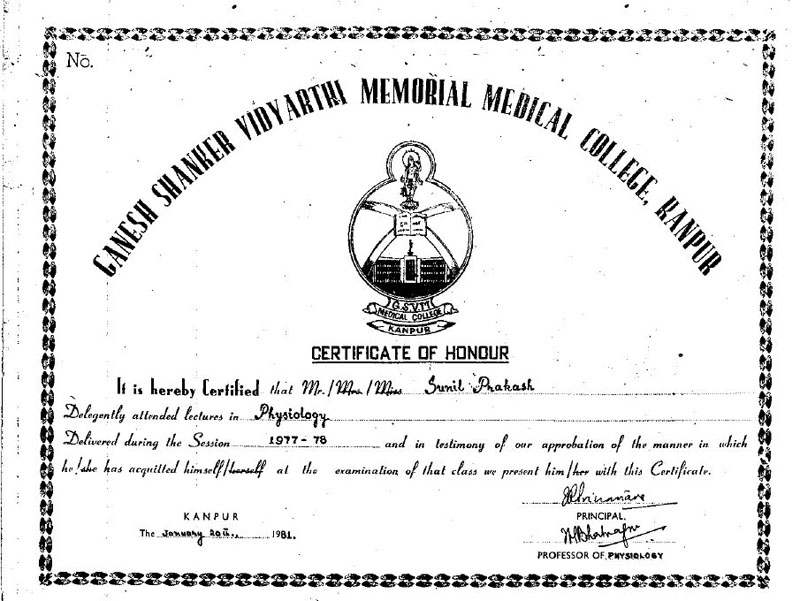 No.
GANESH SHANKER VIDYARTHI MEMORIAL MEDICAL COLLEGE, KANPUR
G.S.V.M
MEDICAL COLLEGE
KANPUR
CERTIFICATE OF HONOUR
It is hereby Certified that Mr./Mrs./Miss Sunil Prakash
Delegently attended lectures in Physiology
Delivered during the Session 1977-78 and in testimony of our approbation of the manner in which
he/she has acquitted himself/herself at the examination of that class we present him/her with this Certificate.
KANPUR
The January 20th, 1981.
PRINCIPAL.
PROFESSOR OF PHYSIOLOGY